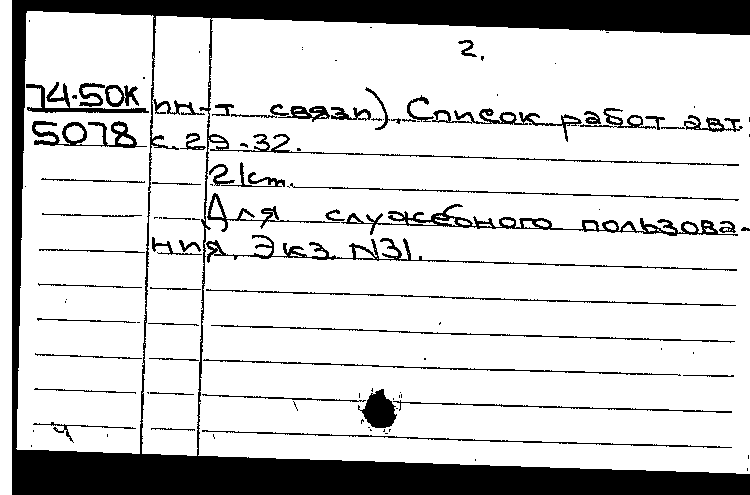 2.
74-50К ин-т связи). Список работ авт.:
5078 с. 29-32.
21см.
Для служебного пользова-
ния. Экз. N31.
ч